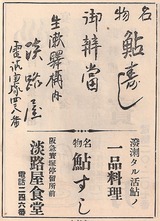 名物 鮎寿し
御辨當
生瀬驛構内
淡路屋
溌溂タル活鮎ノ
一品料理
名物 鮎すし
阪急寳塚停留所前
淡路屋食堂
電話一四六番